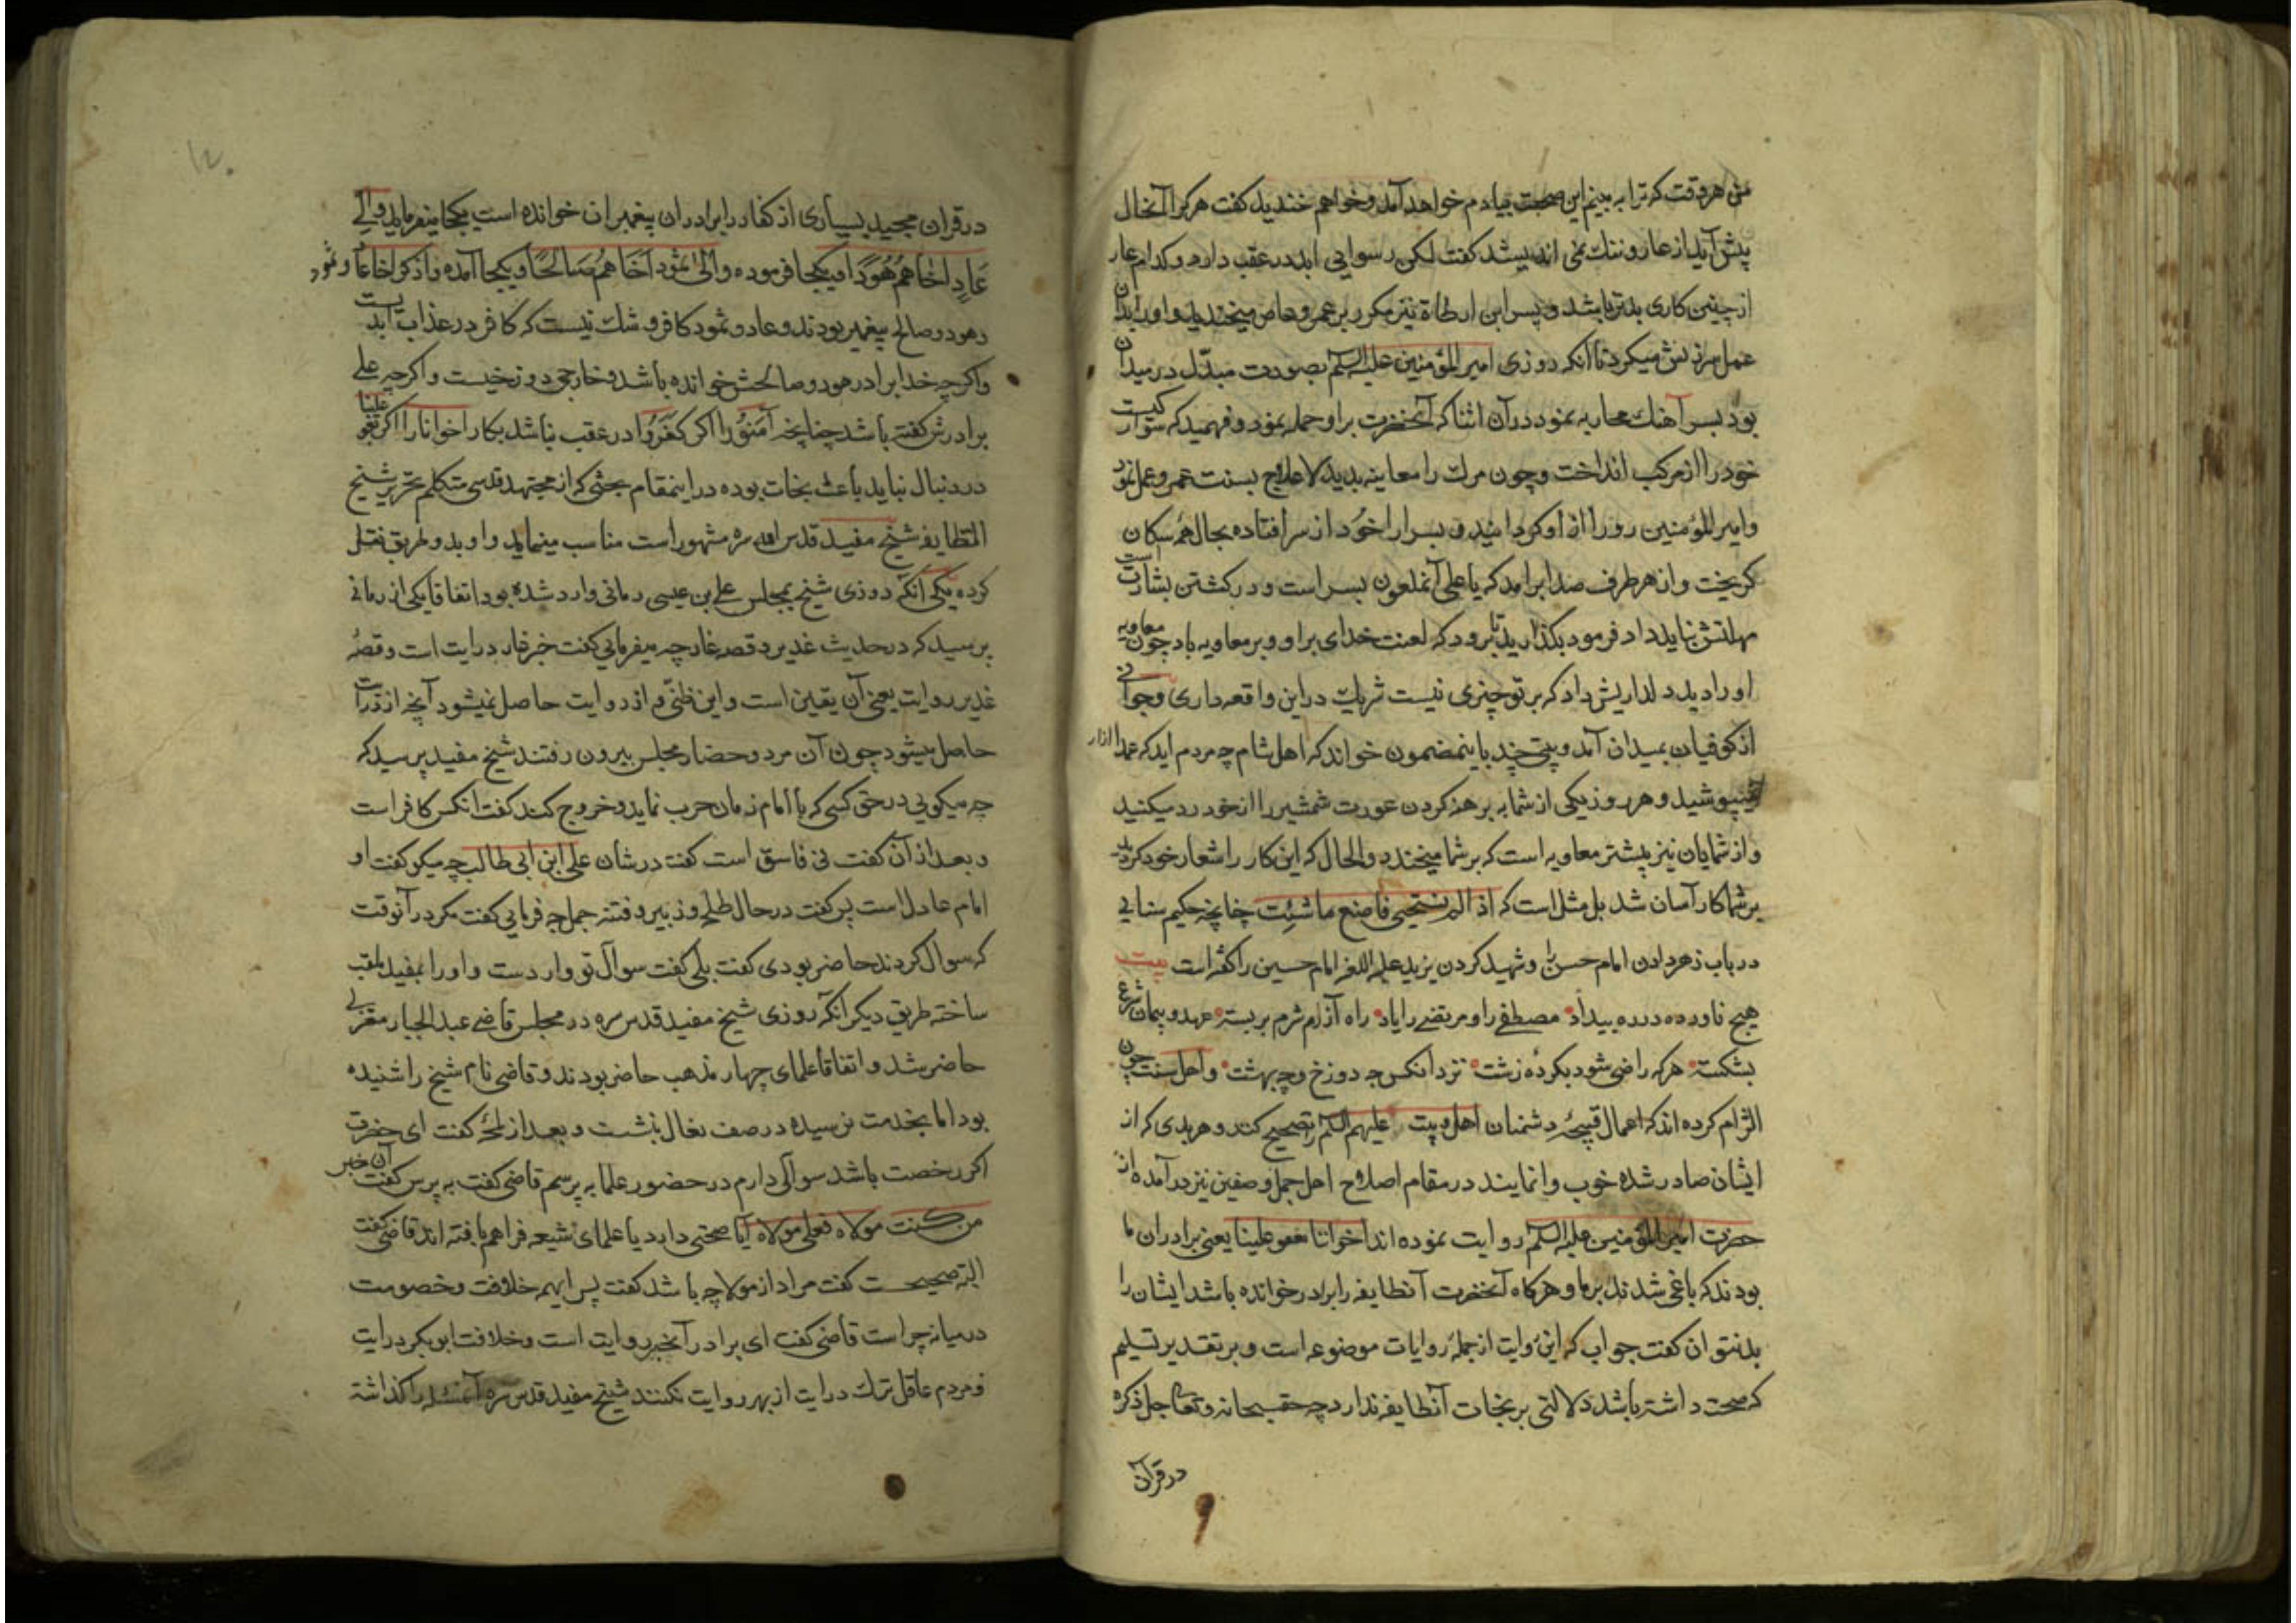 من هر وقت که ترا به بینم این صحبت بیادم خواهد آمد و خواهم خندید کفت هر کرا آنحال
پیش آید از عار و ننك نمی اندیشد کفت لکن رسوایی ابد در عقب دارد و کدام عار
از چنین کاری بدتر باشد و پسر ابن ارطاة نیز مکرر بر عمرو عاص میخندید و او را بدان
عمل سرزنش میکرد تا آنکه روزی امیر المؤمنین علیه السلم بصورت مبدّل در میدان
بود بسر آهنك محاربه نمود در آن اثنا که آنحضرت براو حمله نمود و فهمید که سوار کیست
خود را از مرکب انداخت و چون مرك را معاینه بدید لاعلاج بسنت عمرو عمل نمود
و امیر المؤمنین رو را از او کردانید و بسر ازار خود از سر افتاده بحال همه سکان
کریخت و از هر طرف صدا برامد که یا علی آنملعون بسر است و در کشتن بشارت است
مهلتش نباید داد فرمود بکذارید تا برود که لعنت خدای براو و بر معاویه باد چون معاویه
او را دید دلداریش داد که بر تو چیزی نیست شریك در این واقعه داری و جوانی
از کوفیان بمیدان آمد و بیتی چند باینمضمون خواند که اهل شام چه مردم اید که عمدا ازار
نمیپوشید و هر روز یکی از شما به برهنه کردن عورت شمشیر را از خود رد میکنید
و از شمایان نیز پیشتر معاویه است که بر شما میخندد و الحال که این کار را شعار خود کردید
بر شما کار آسان شد بل مثل است که اذا لم تستحیی فاصنع ما شئت چنانچه حکیم سنایی
در باب زهر دادن امام حسن را و شهید کردن یزید علیه اللعنه امام حسین را کفته است بیت
هیچ ناورده در ره بیداد مصطفی را و مرتضی را یاد راه آزرم شرم بربسته عهد و پیمان شرع
بشکسته هر که راضی شود بکرده زشت نزد انکس چه دوزخ و چه بهشت و اهل سنت چون
التزام کرده اند که اعمال قبیحهٔ دشمنان اهل بیت علیهم السلم را تصحیح کنند و هر بدی که از
ایشان صادر شده خوب وانمایند در مقام اصلاح اهل جمل و صفین نیز در آمده از
حضرت امیر المؤمنین علیه السلم روایت نموده اند اخواننا بغو علینا یعنی برادران ما
بودند که باغی شدند بر ما و هر کاه آنحضرت آنطایفه را برادر خوانده باشد ایشان را
بد نتوان کفت جواب که این روایت از جملهٔ روایات موضوعه است و بر تقدیر تسلیم
که صحت داشته باشد دلالتی بر نجات آنطایفه ندارد چه حق سبحانه و تعالی جل ذکره
در قرآن
در قران مجید بسیاری از کفار را برادران پیغمبران خوانده است یکجا میفرماید و الی
عَادٍ اَخَاهُم هُودًا و یکجا فرموده و الیٰ ثمود اَخَاهُم صَالحًا و یکجا آمده و اذکر اخا عاد و ثمود
و هود و صالح پیغمبر بودند و عاد و ثمود کافر و شك نیست که کافر در عذاب ابدیست
و اکر چه خدا برادر هود و صالحش خوانده باشد و خارجی دوزخیست و اکر چه علی
برادرش کفته باشد چنانچه آمَنُوا را اکر کفَرُوا در عقب باشد بکار اخواننا را اکر بغو علینا
در دنبال نیاید باعث نجات بوده در اینمقام بحثی که از مجتهد قدسی متکلم نحریر شیخ
الطایفه شیخ مفید قدس الله سره مشهور است مناسب مینماید و او بدو طریق نقل
کرده یکی آنکه روزی شیخ بمجلس علی بن عیسی رمانی وارد شده بود اتفاقا یکی از رمانی
پرسید که در حدیث غدیر و قصه غار چه میفرمائی کفت خبر غار درایت است و قصهٔ
غدیر روایت یعنی آن یقین است و این ظنّی و از روایت حاصل نمیشود آنچه از درایت
حاصل میشود چون آن مرد و حضار مجلس بیرون رفتند شیخ مفید پرسید که
چه میکویی در حق کسی که با امام زمان حرب نماید و خروج کند کفت انکس کافر است
و بعد از آن کفت نی فاسق است کفت در شان علی ابن ابی طالب چه میکو کفت او
امام عادل است پس کفت در حال طلحه و زبیر و فتنه جمل چه فرمایی کفت مکر در آنوقت
که سوال کردند حاضر بودی کفت بلی کفت سوآل تو وارد است و او را بمفید ملقب
ساخته طریق دیکر انکه روزی شیخ مفید قدس سره در مجلس قاضی عبد الجبار معتزلی
حاضر شد و اتفاقا علمای چهار مذهب حاضر بودند و قاضی نام شیخ را شنیده
بود اما بخدمت نرسیده در صف نعال بنشست و بعد از لمحهٔ کفت ای حضرت
اکر رخصت باشد سوآلی دارم در حضور علما به پرسم قاضی کفت به پرس کفت آن خبر
من کنت مولاه فعلی مولاه آیا صحتی دارد یا علمای شیعه فراهم بافته اند قاضی کفت
البته صحیحست کفت مراد از مولا چه باشد کفت پس اینهمه خلافت و خصومت
در میانه چراست قاضی کفت ای برادر آنخبر روایت است و خلافت ابوبکر درایت
و مردم عاقل ترك درایت از بهر روایت نکنند شیخ مفید قدس سره آنمسئله را کذاشته